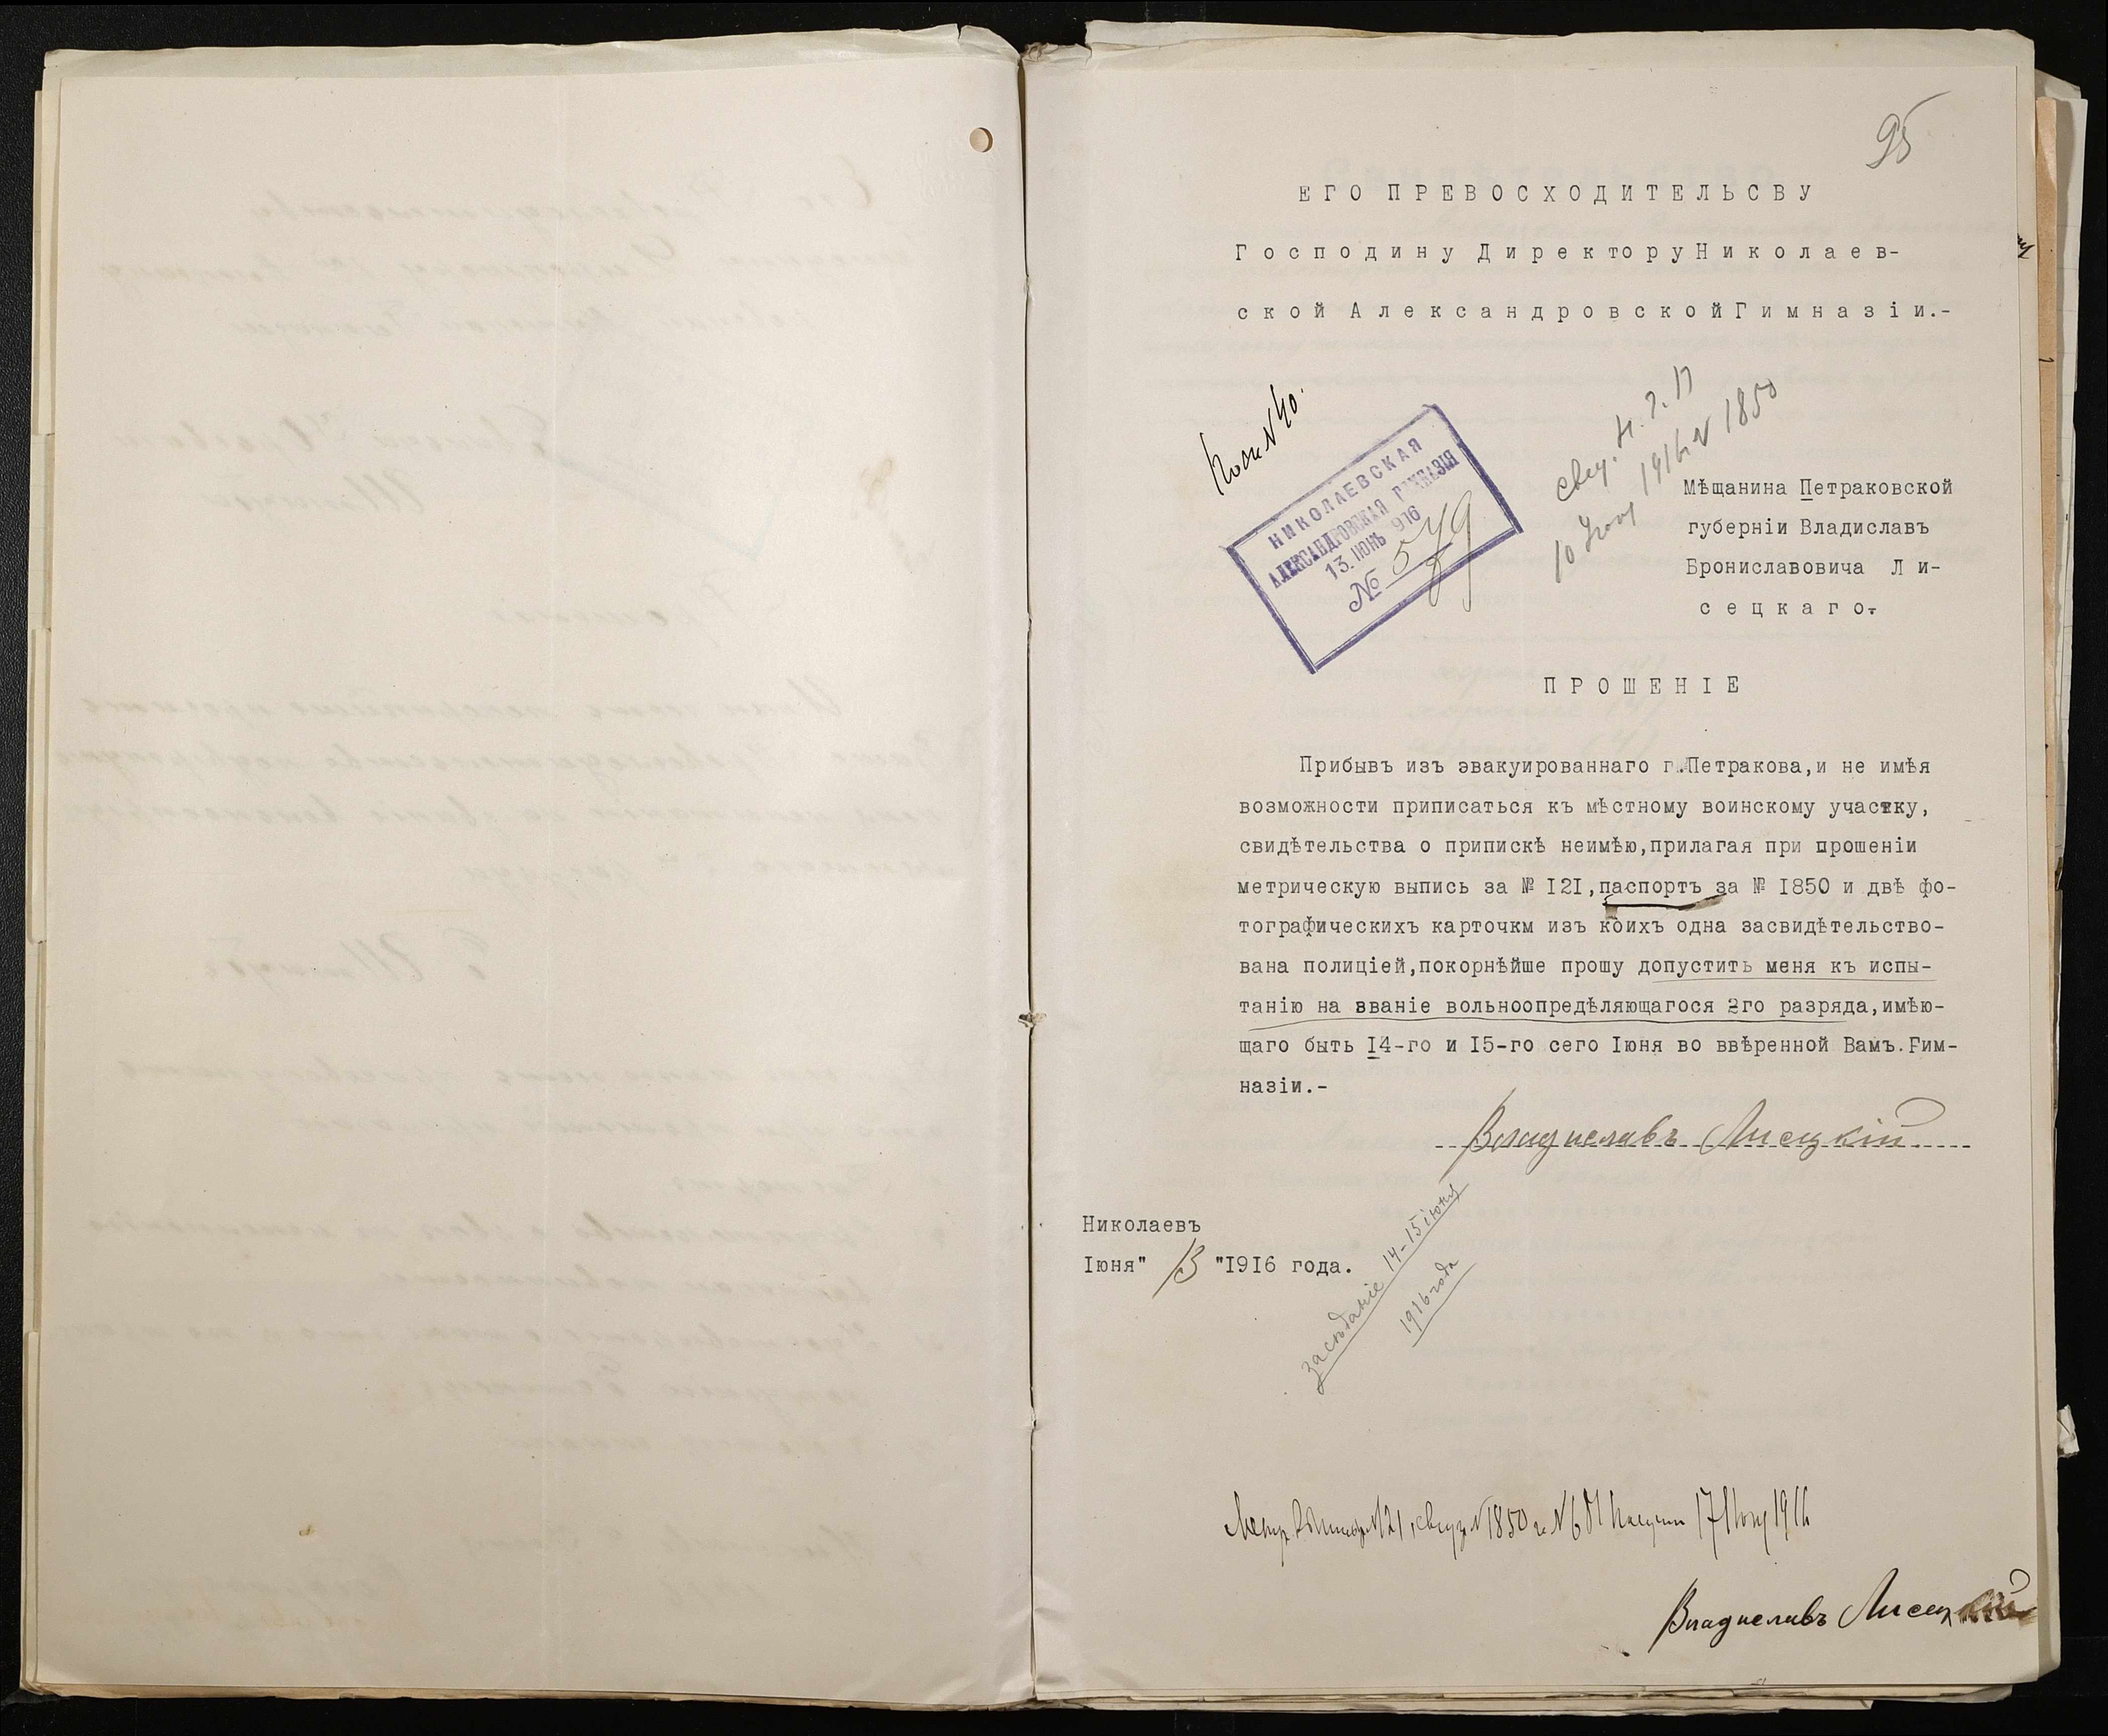 95
ЕГО ПРЕВОСХОДИТЕЛЬСВУ
Господину Директору Николаев-
ской Александровской Гимназіи.-
№ 40.
НИКОЛАЕВСКАЯ
АЛЕКСАНДРОВСКАЯ ГИМНАЗІЯ
13. ІЮНЬ 916
№ 579
1916 г. № 1850
Мѣщанина Петраковской
губерніи Владиславъ
Брониславовича Ли-
сецкаго.
ПРОШЕНІЕ
Прибывъ изъ эвакуированнаго г. Петракова,и не имѣя
возможности приписаться къ мѣстному воинскому участку,
свидѣтельства о припискѣ неимѣю,прилагая при прошеніи
метрическую выпись за № I2I,паспортъ за № I850 и двѣ фо-
тографическихъ карточкм изъ коихъ одна засвидѣтельство-
вана полиціей,покорнѣйше прошу допустить меня къ испы-
танію на званіе вольноопредѣляющагося 2го разряда,имѣю-
щаго быть I4-го и I5-го сего Іюня во ввѣренной Вамъ.Гим-
назіи.-
Владиславъ Лисецкій
Николаевъ
Іюня" 13 "I9I6 года.
засѣданіе 14-15 іюня
1916 года
Метр. выпись № 121, свид. № 1850 получилъ 17 Іюня 1916
Владиславъ Лисецкій